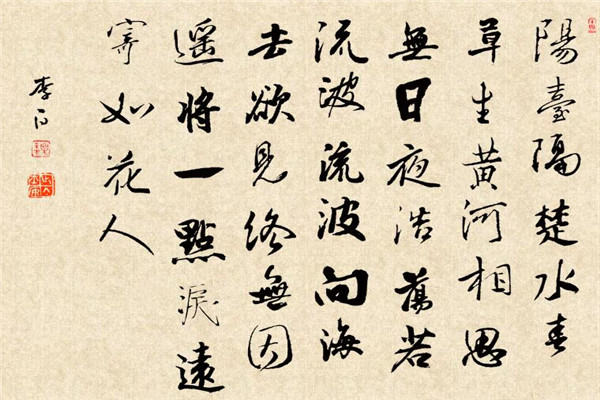 陽臺隔楚水春
草生黄河相思
無日夜浩蕩若
流波流波向海
去欲見終無因
遥將一點淚遠
寄如花人
李